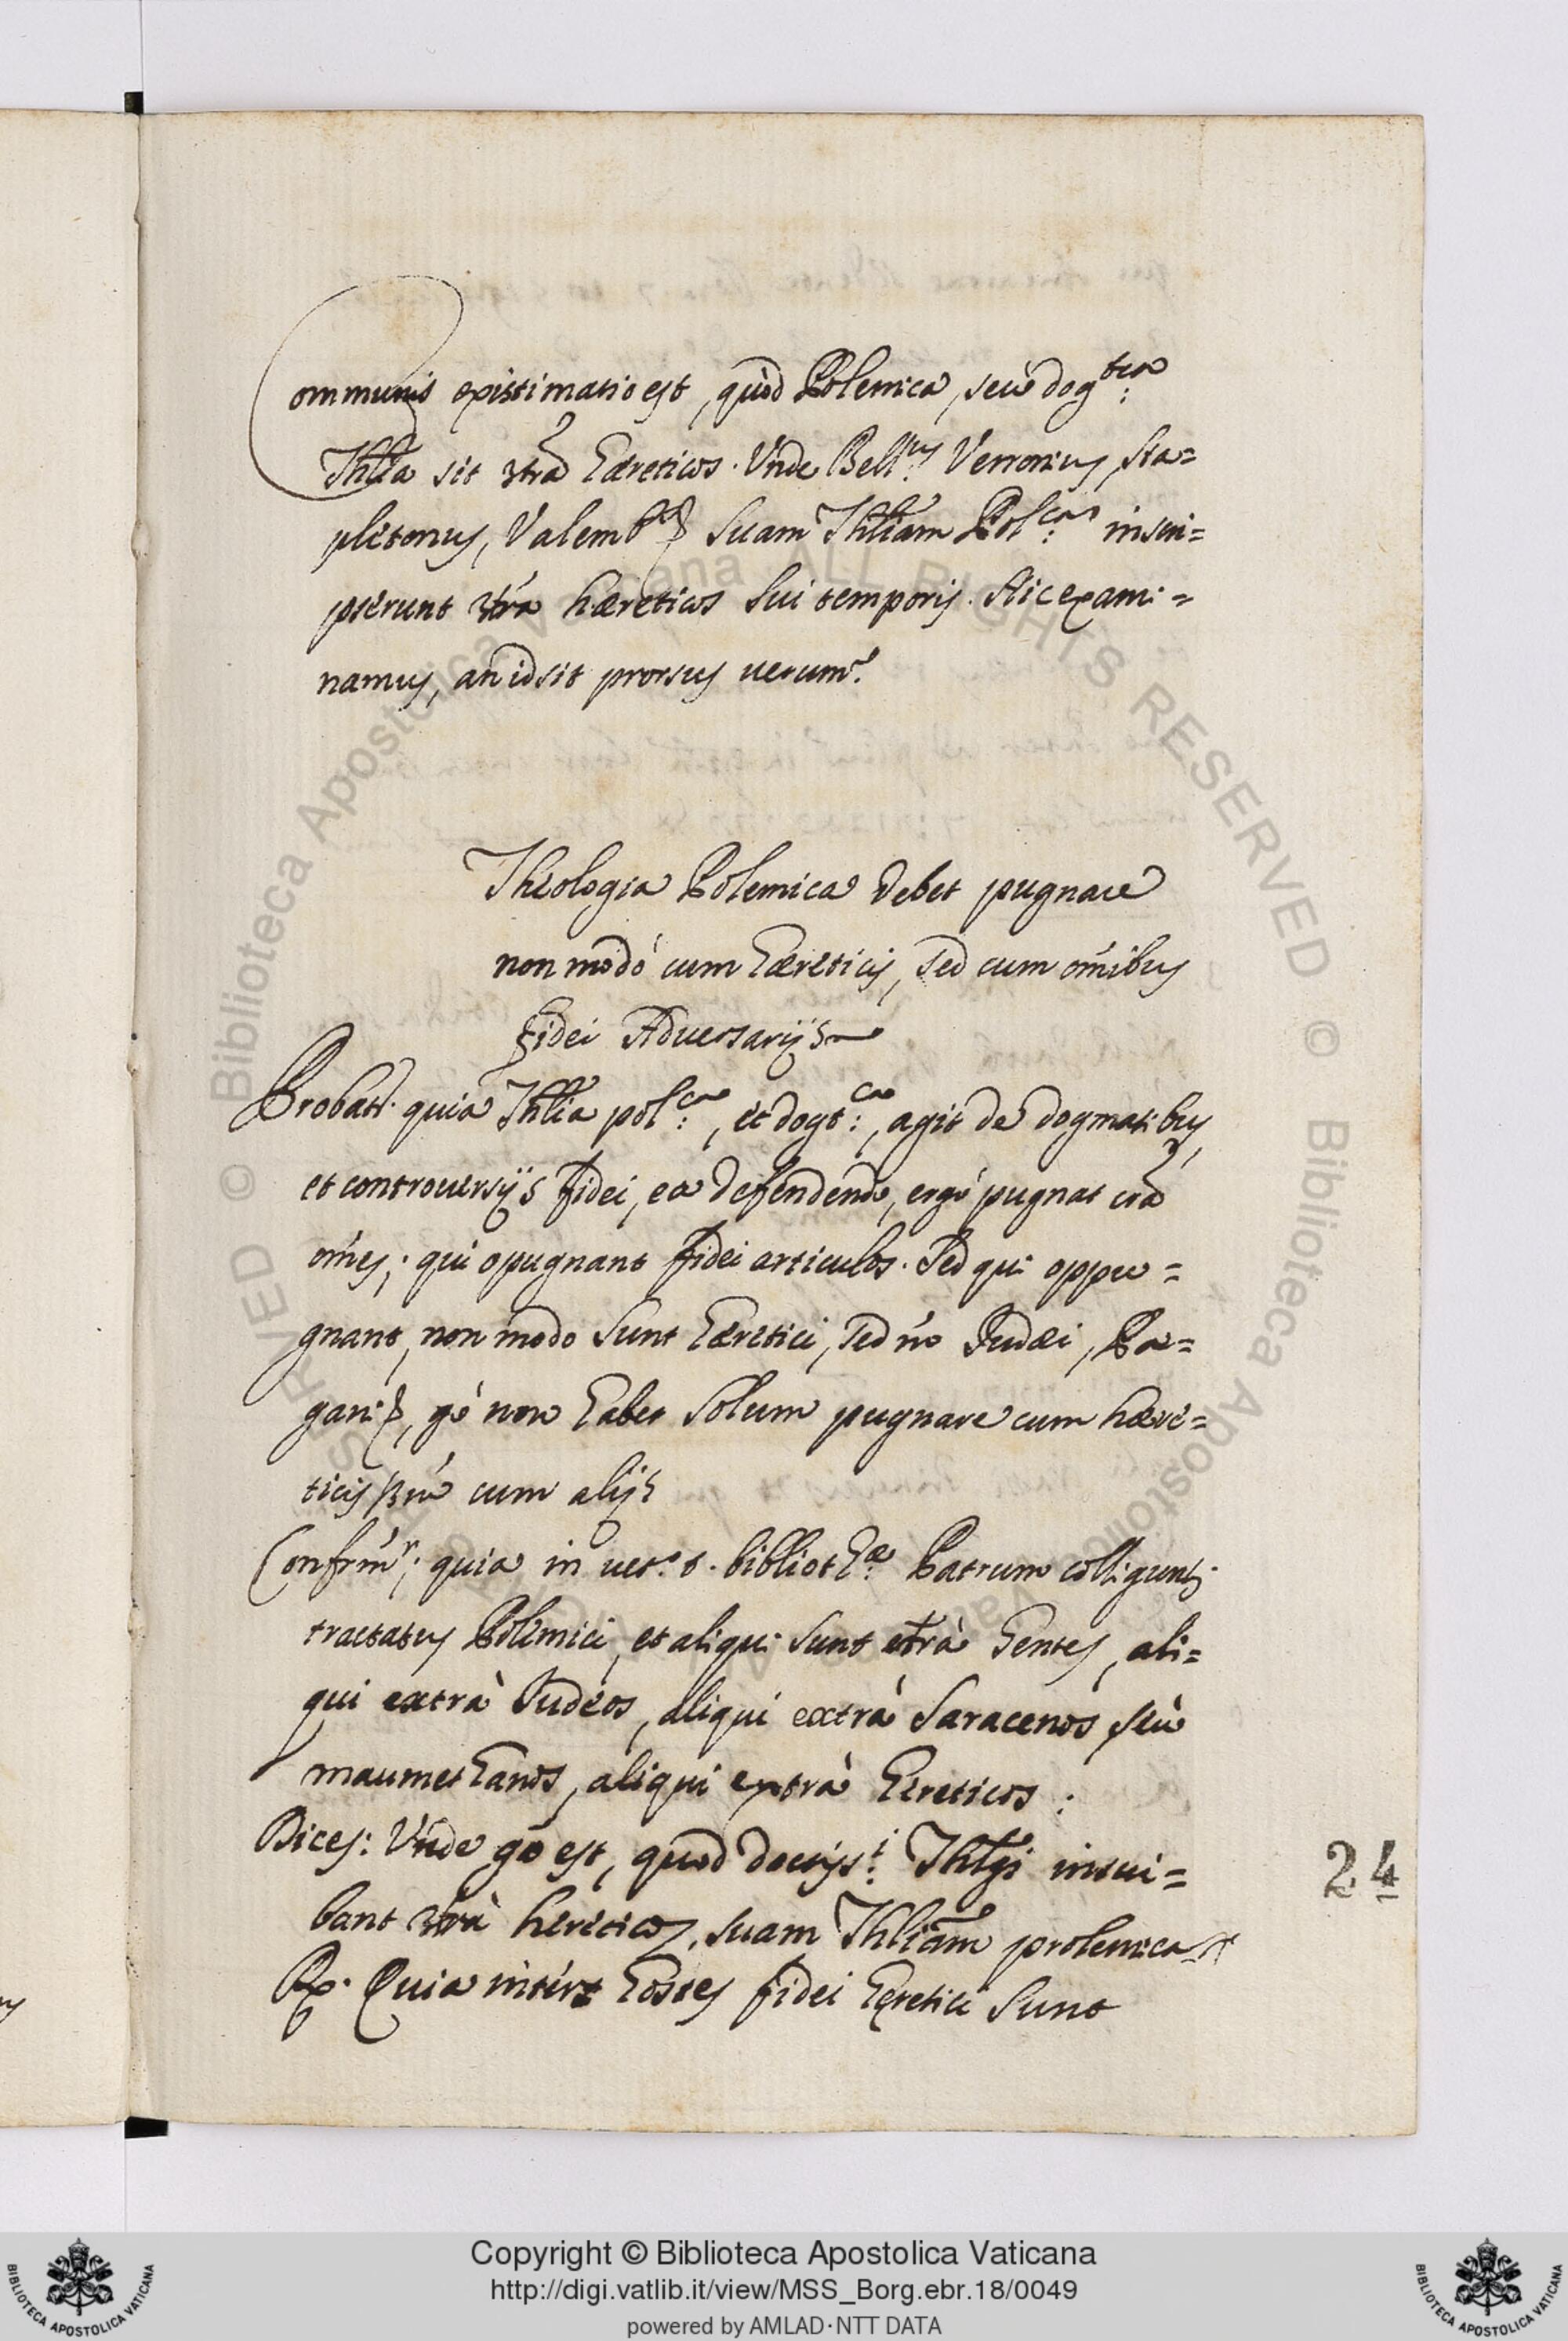 Communis existimatio est, quod Polemica, seù dog:tca
Thlia sit 3tra Hæreticos. Vnde Bell:us Verronius, Sta=
pletonus, Valemb. & suam Thliam Pol:cam inscri=
pserunt 3tra hæreticos sui temporis. Hic exami=
namus, an id sit prorsus uerum?
Theologia Polemica debet pugnare
non modó cum Hæreticis, sed cum omnibus
fidei Adversarijs
Probatr. quia Thlia pol:ca, et dogt:ca, agit de dogmatibus,
et controuersijs fidei, ea defendendo, ergo pugnat ctra
omes; qui opugnant fidei articulos. Sed qui oppu=
gnant, non modo sunt Hæretici, sed Judæi, Pa=
gani &, gò non habet solum pugnare cum hære=
ticis cum alijs
Confrmr; quia in uet. t. bibliotha Patrum colliguntr
tractatus Polemici, et aliqui sunt extrà Gentes, ali=
qui extrà Judeos, aliqui extrà Saracenos seù
maumethanos, aliqui extrà Hereticos.
Dices: Vnde gò est, quod doctiss:i Thlgi inscri=
bant 3trà hereticos suam Thliam prolemicam
Rx. Quia inter Hostes fidei Hæretici sunt
24
© Biblioteca Apostolica Vaticana ALL RIGHTS RESERVED © Biblioteca Apostolica Vaticana ALL RIGHTS RESERVED
Copyright © Biblioteca Apostolica Vaticana
http://digi.vatlib.it/view/MSS_Borg.ebr.18/0049
powered by AMLAD·NTT DATA
BIBLIOTECA APOSTOLICA VATICANA
BIBLIOTECA APOSTOLICA VATICANA